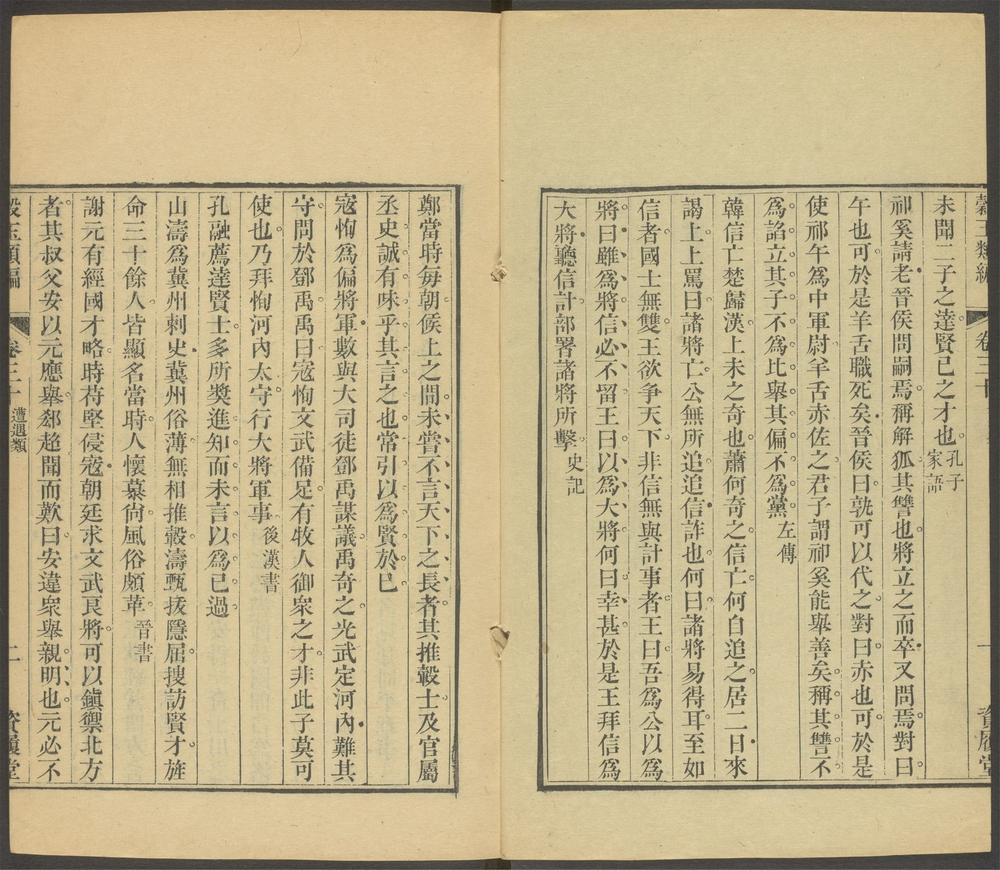 類編
卷三十
資履堂
未聞二子之達賢已之才也孔子家語
祁奚請老晉侯問嗣焉稱解狐其讐也將立之而卒又問焉對曰
午也可於是羊舌職死矣晉侯曰孰可以代之對曰赤也可於是
使祁午爲中軍尉羊舌赤佐之君子謂祁奚能舉善矣稱其讐不
爲諂立其子不爲比舉其偏不爲黨左傳
韓信亡楚歸漢上未之奇也蕭何奇之信亡何自追之居二日來
謁上上罵曰諸將亡公無所追追信詐也何曰諸將易得耳至如
信者國士無雙王欲爭天下非信無與計事者王曰吾爲公以爲
將曰雖爲將信必不留王曰以爲大將何曰幸甚於是王拜信爲
大將聽信計部署諸將所擊史記
鄭當時每朝候上之間未嘗不言天下之長者其推轂士及官屬
丞史誠有味乎其言之也常引以爲賢於已
寇恂爲偏將軍數與大司徒鄧禹謀議禹奇之光武定河內難其
守問於鄧禹禹曰寇恂文武備足有牧人御衆之才非此子莫可
使也乃拜恂河內太守行大將軍事後漢書
孔融薦達賢士多所奬進知而未言以爲已過
山濤爲冀州刺史冀州俗薄無相推轂濤甄拔隱屈搜訪賢才旌
命三十餘人皆顯名當時人懷慕尙風俗頗革晉書
謝元有經國才略時苻堅侵寇朝廷求文武良將可以鎭禦北方
者其叔父安以元應舉郄超聞而歎曰安違衆舉親明也元必不
玉類編
卷三十
遭遇類
二
資履堂